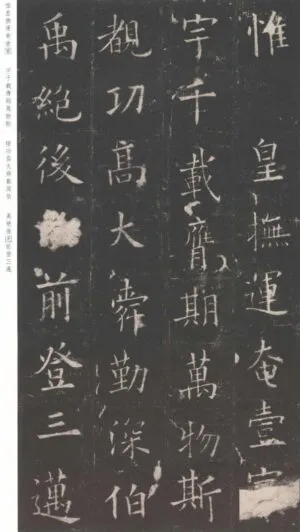 惟皇撫運奄壹寰
宇千載膺期萬物斯
覩功髙大舜勤深伯
禹絕後前登三邁
惟皇撫運奄壹寰 宇千載膺期萬物斯 覩功高大舜勤深伯 禹絕後光前登三邁